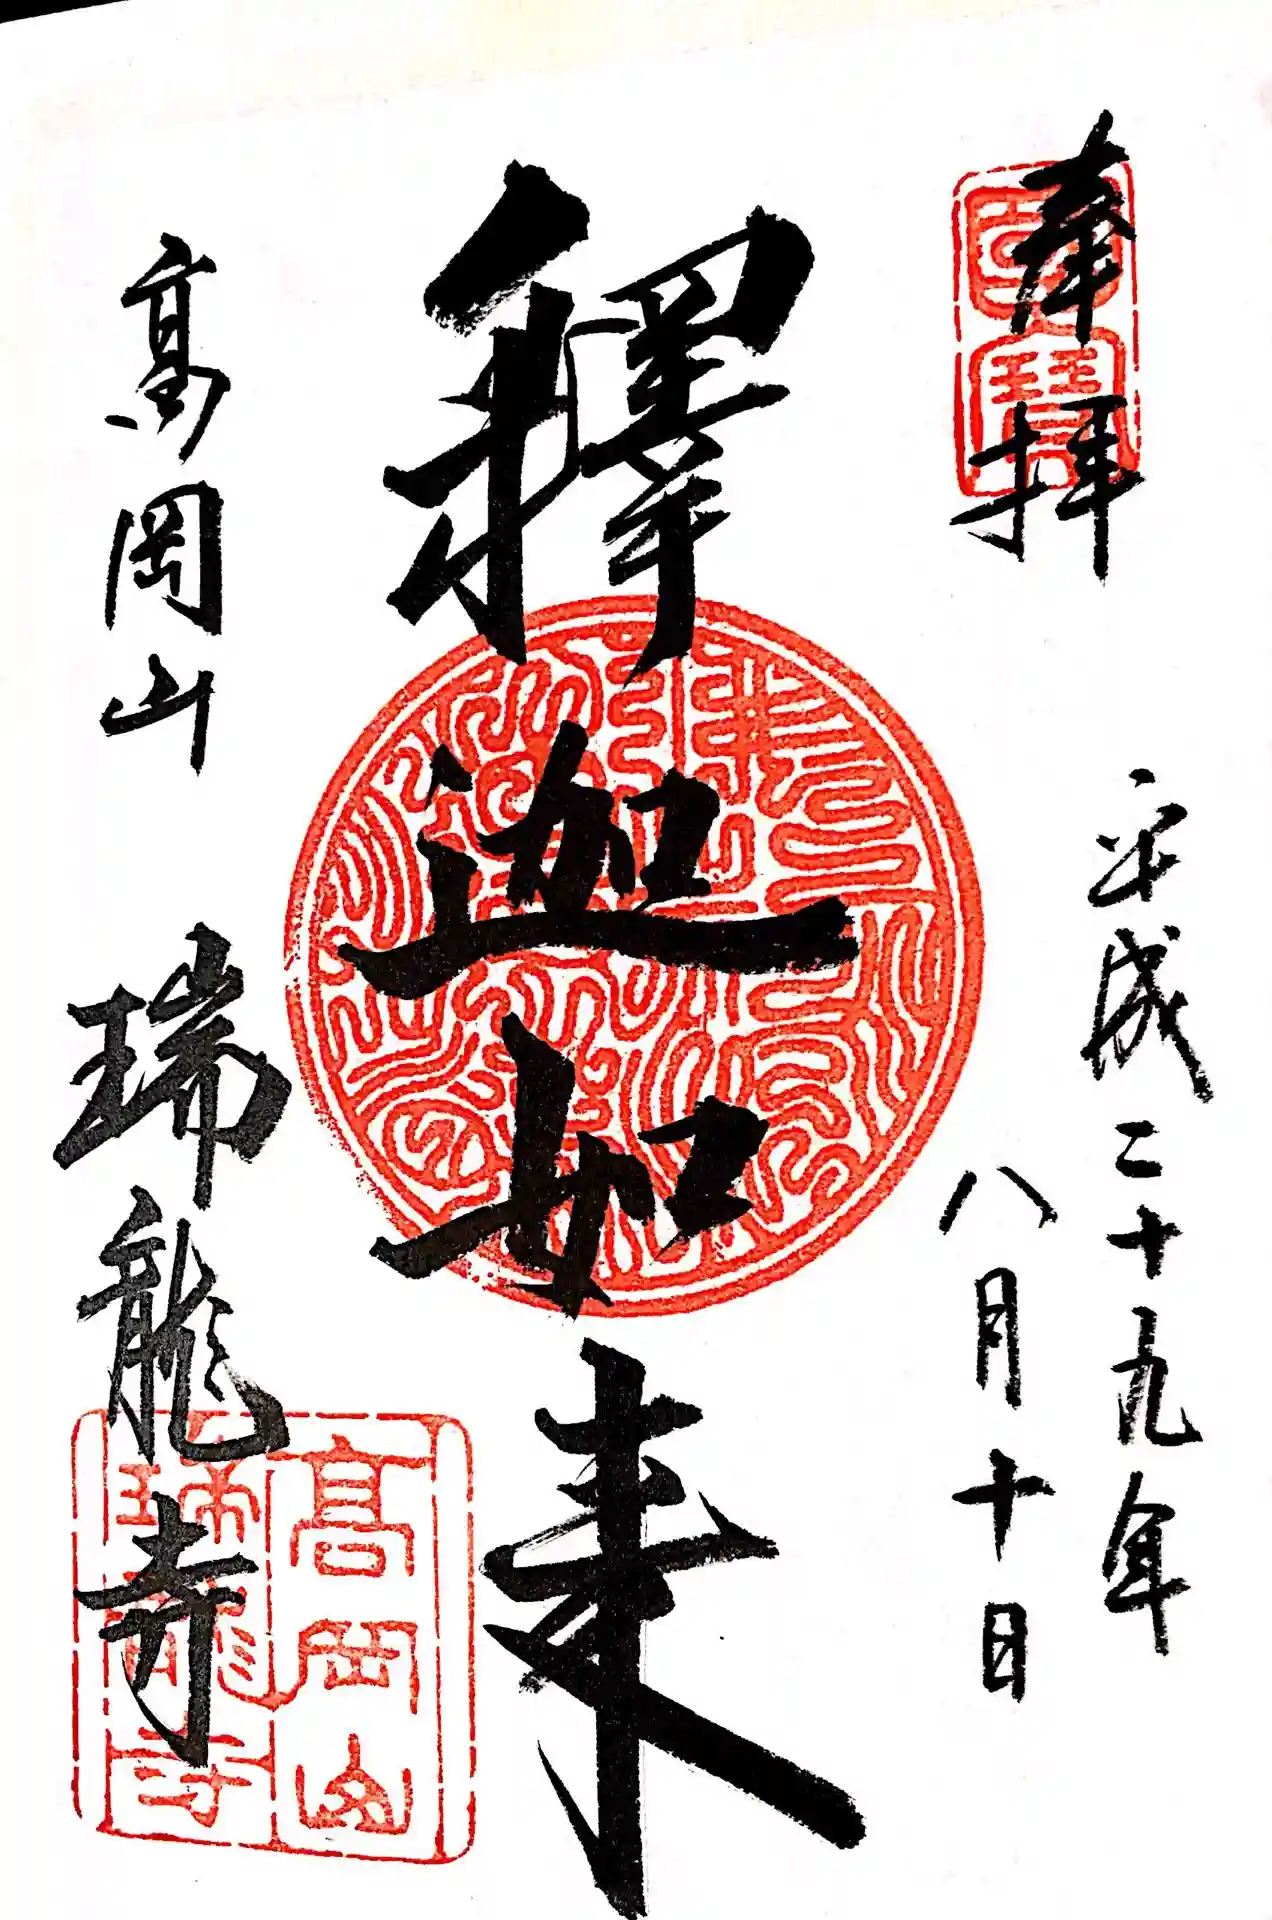 奉拝
國寶
平成二十九年
八月十日
釋迦如来
高岡山
瑞龍寺
高岡山
瑞龍寺